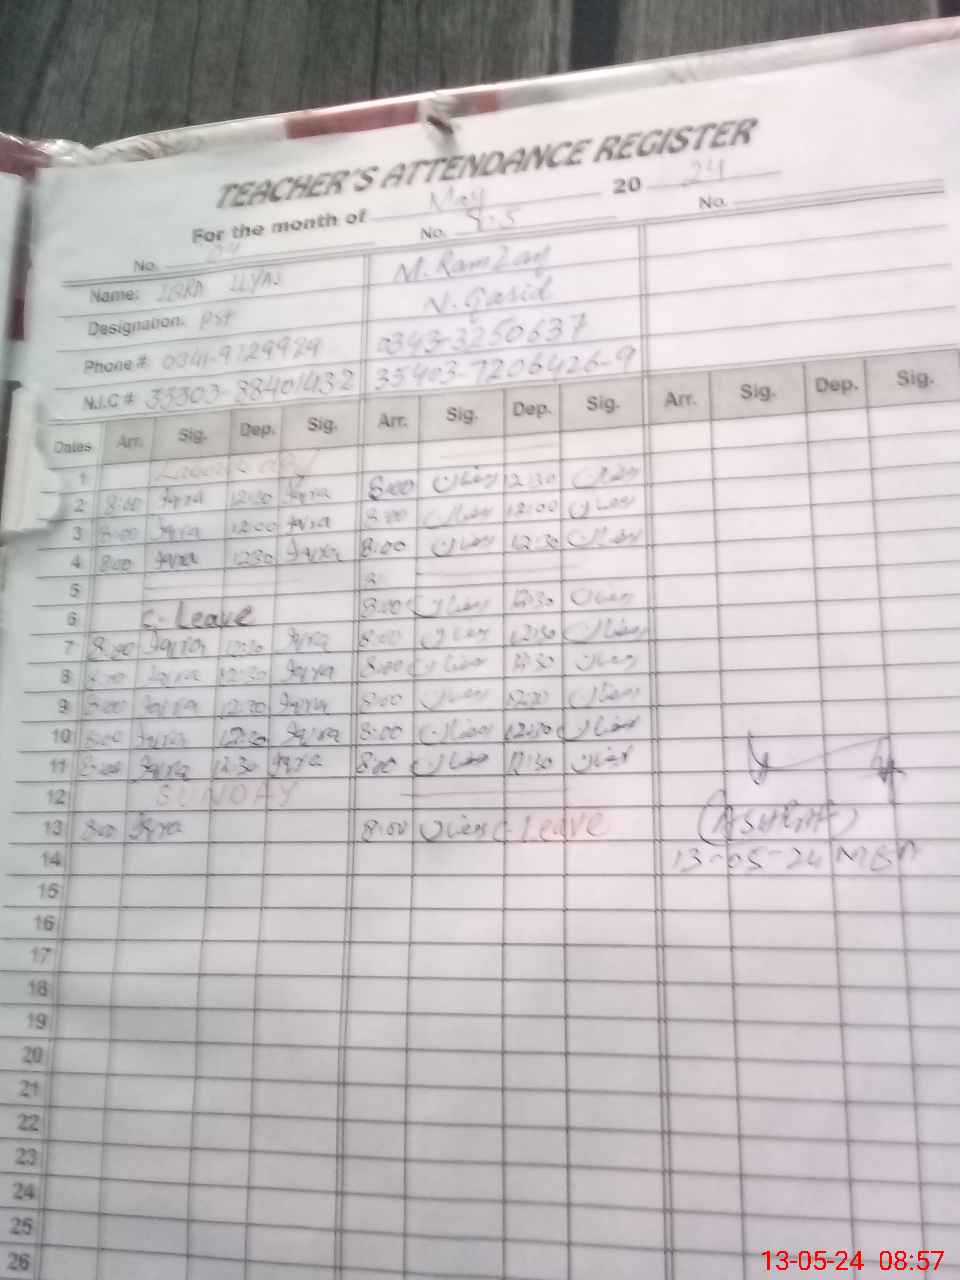 TEACHER'S ATTENDANCE REGISTER
For the month of May 2024
No. No. No.
Name: M. Ramzan
Designation: PST N. Qasid
Phone #: 0341-9729989 0343-3250637
N.I.C # 35303-88401432 35403-7206426-9
Dates Arr. Sig. Dep. Sig. Arr. Sig. Dep. Sig. Arr. Sig. Dep. Sig.
1
2 8:00 Iqra 12:30 Iqra 8:00 12:30
3 8:00 Iqra 12:00 Iqra 8:00 12:00
4 8:00 Iqra 12:30 Iqra 8:00 12:30
5
6 C. Leave 8:00 12:30
7 8:00 Iqra 12:30 Iqra 8:00 12:30
8 8:00 Iqra 12:30 Iqra 8:00 12:30
9 8:00 Iqra 12:30 Iqra 8:00 12:30
10 8:00 Iqra 12:30 Iqra 8:00 12:30
11 8:00 Iqra 12:30 Iqra 8:00 12:30
12 SUNDAY
13 8:00 Iqra 8:00 C-Leave (ASHRAF)
14 13-05-24
15
16
17
18
19
20
21
22
23
24
25
26
13-05-24 08:57